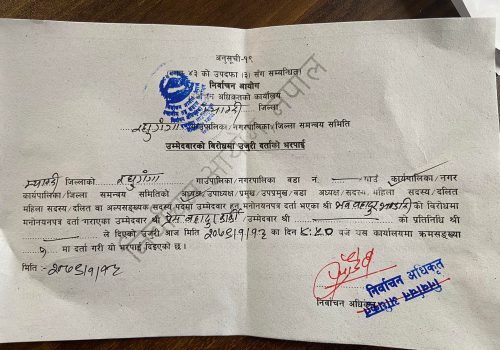 अनुसूची-१९
(दफा ४३ को उपदफा (३) संग सम्बन्धित)
निर्वाचन आयोग
निर्वाचन अधिकृतको कार्यालय
म्याग्दी जिल्ला
रघुगंगा गाउँपालिका/नगरपालिका/जिल्ला समन्वय समिति
उम्मेदवारको विरोधमा उजुरी दर्ताको भरपाई
म्याग्दी जिल्लाको रघुगंगा गाउँपालिका/नगरपालिका वडा नं. गाउँ कार्यपालिका/नगर
कार्यपालिका/जिल्ला समन्वय समितिको अध्यक्ष/उपाध्यक्ष/प्रमुख/उपप्रमुख/वडा अध्यक्ष/सदस्य/महिला सदस्य/दलित
महिला सदस्य/दलित वा अल्पसङ्ख्यक सदस्य पदमा उम्मेदवार हुन मनोनयनपत्र दर्ता भएका श्री भव बहादुर भण्डारी को विरोधमा
मनोनयनपत्र दर्ता गराएका उम्मेदवार श्री प्रेम बहादुर उम्मेदवार श्री को प्रतिनिधि श्री
ले दिएको उजुरी आज मिति २०७९/१/१९ का दिन बजे यस कार्यालयमा क्रमसङ्ख्या
१ मा दर्ता गरी यो भरपाई दिइएको छ।
मिति :- २०७९/१/१९
निर्वाचन अधिकृत
निर्वाचन अधिकृत
निर्वाचन अधिकृत